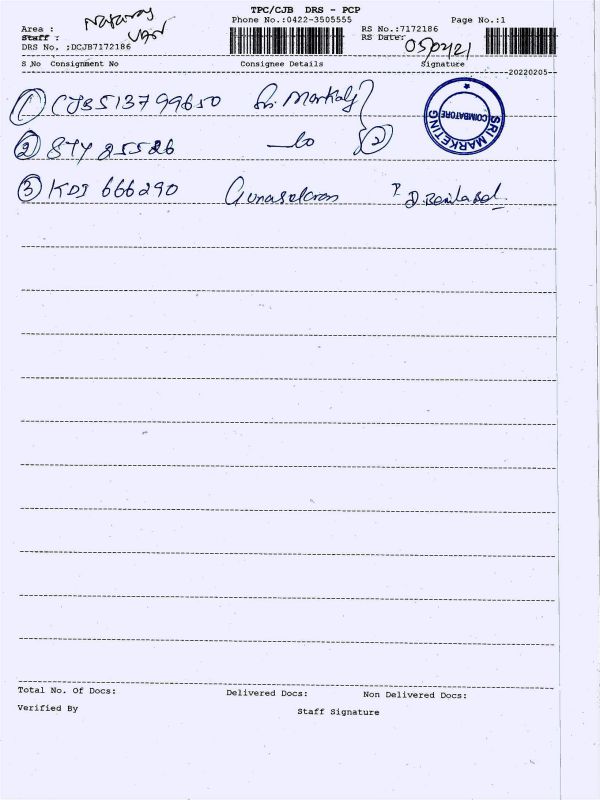 TPC/CJB DRS - PCP
Phone No.:0422-3505555 Page No.:1
Area : Nataraj
Staff : VAN
RS No.:7172186
RS Date:
DRS No. :DCJB7172186
S No Consignment No Consignee Details Signature
20220205
① CJB513799650 Sri Marketg
② 87425526 — do ②
③ KDJ 666290 Gunasekaran
SRI MARKETING COIMBATORE
Total No. Of Docs: Delivered Docs: Non Delivered Docs:
Verified By Staff Signature